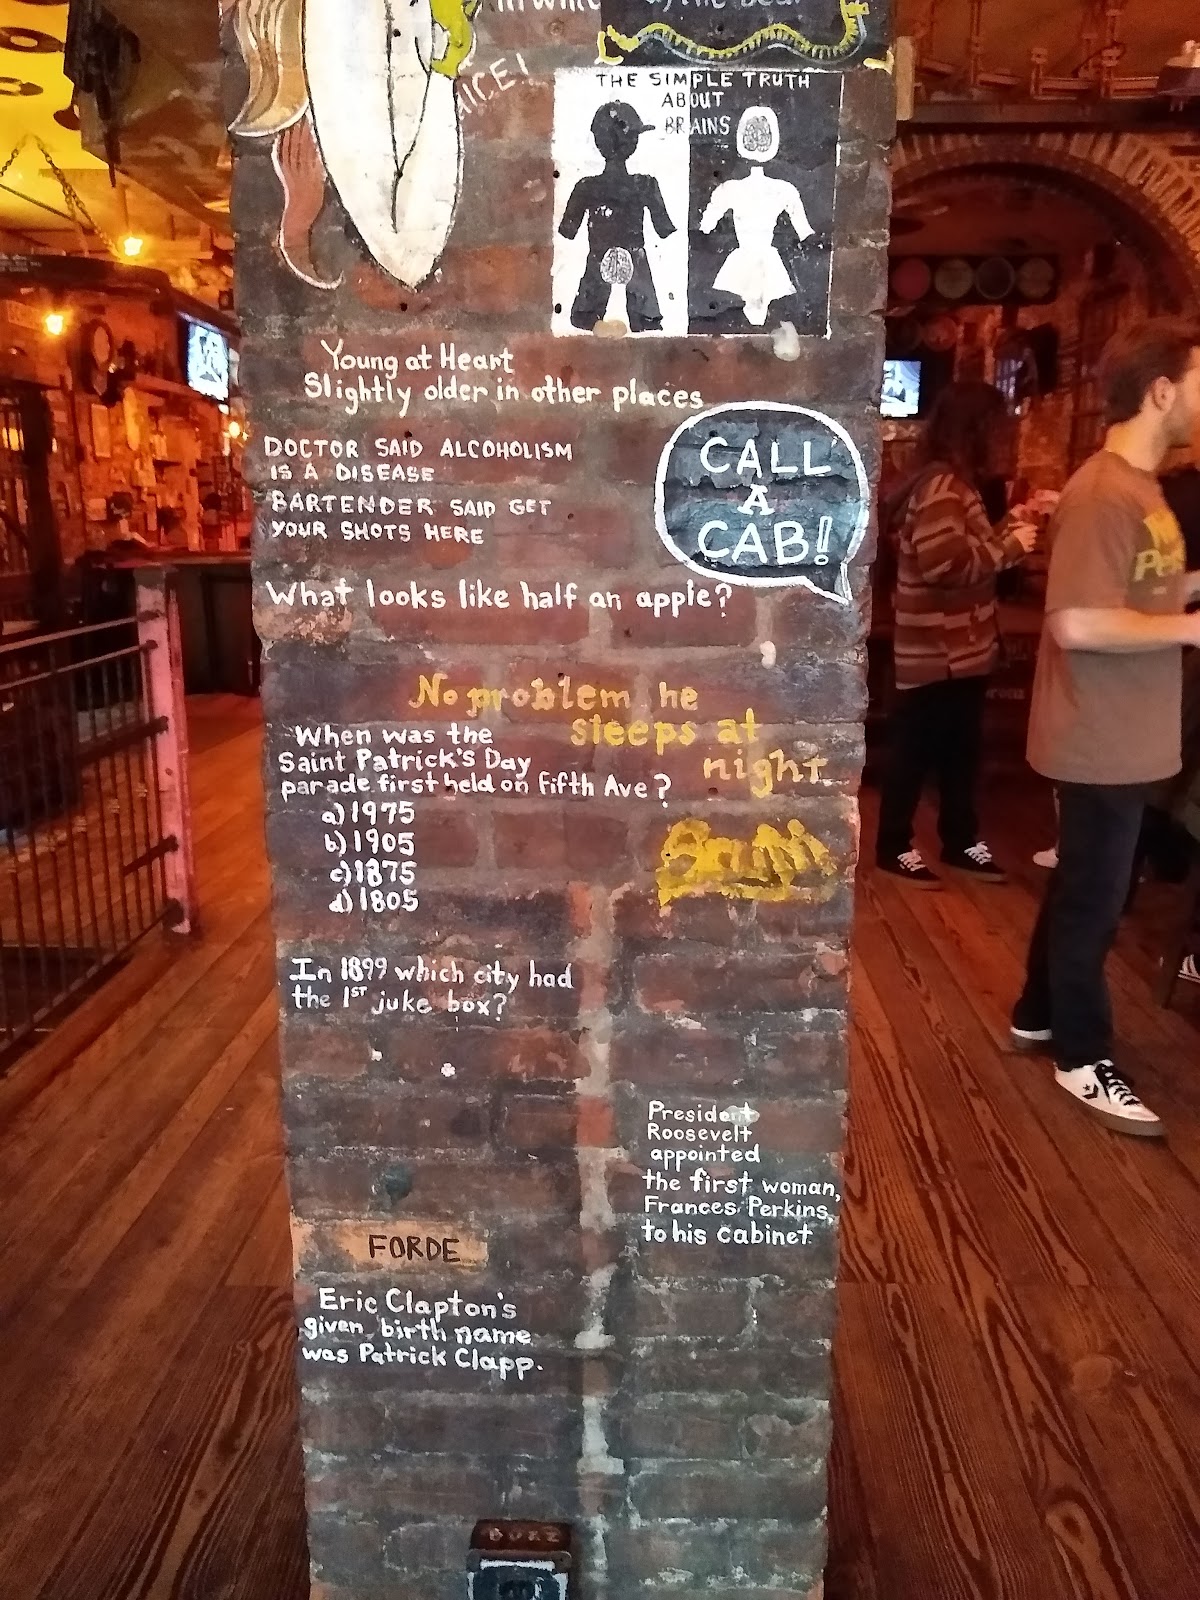 THE SIMPLE TRUTH
ABOUT
BRAINS
Young at Heart
Slightly older in other places
DOCTOR SAID ALCOHOLISM
IS A DISEASE
BARTENDER SAID GET
YOUR SHOTS HERE
CALL
A
CAB!
What looks like half an apple?
No problem he
sleeps at
night
When was the
Saint Patrick's Day
parade first held on Fifth Ave?
a) 1975
b) 1905
c) 1875
d) 1805
In 1899 which city had
the 1ST juke box?
President
Roosevelt
appointed
the first woman,
Frances Perkins,
to his cabinet
FORDE
Eric Clapton's
given birth name
was Patrick Clapp.